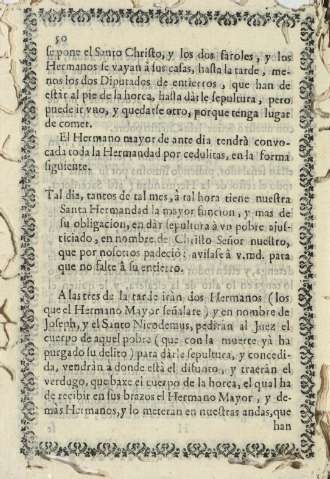 50
se pone el Santo Christo, y los dos faroles, y los
Hermanos se vayan à sus casas, hasta la tarde, me-
nos los dos Diputados de entierros, que han de
estàr al pie de la horca, hasta dàrle sepultura, pero
puede ir vno, y quedarse otro, porque tenga lugar
de comer.
El Hermano mayor de ante dia tendrà convo-
cada toda la Hermandad por cedulitas, en la forma
siguiente.
Tal dia, tantos de tal mes, à tal hora tiene nuestra
Santa Hermandad la mayor funcion, y mas de
su obligacion, en dàr sepultura à vn pobre ajus-
ticiado, en nombre de Christo Señor nuestro,
que por nosotros padeciò; avisase à v.md. para
que no falte à su entierro.
A las tres de la tarde iràn dos Hermanos (los
que el Hermano Mayor señalare) y en nombre de
Joseph, y el Santo Nicodemus, pediràn al Juez el
cuerpo de aquel pobre (que con la muerte yà ha
purgado su delito) para dàrle sepultura, y concedi-
da, vendràn à donde està el difunto, y traeràn el
verdugo, que baxe el cuerpo de la horca, el qual ha
de recibir en sus brazos el Hermano Mayor, y de-
màs Hermanos, y lo meteràn en nuestras andas, que
han